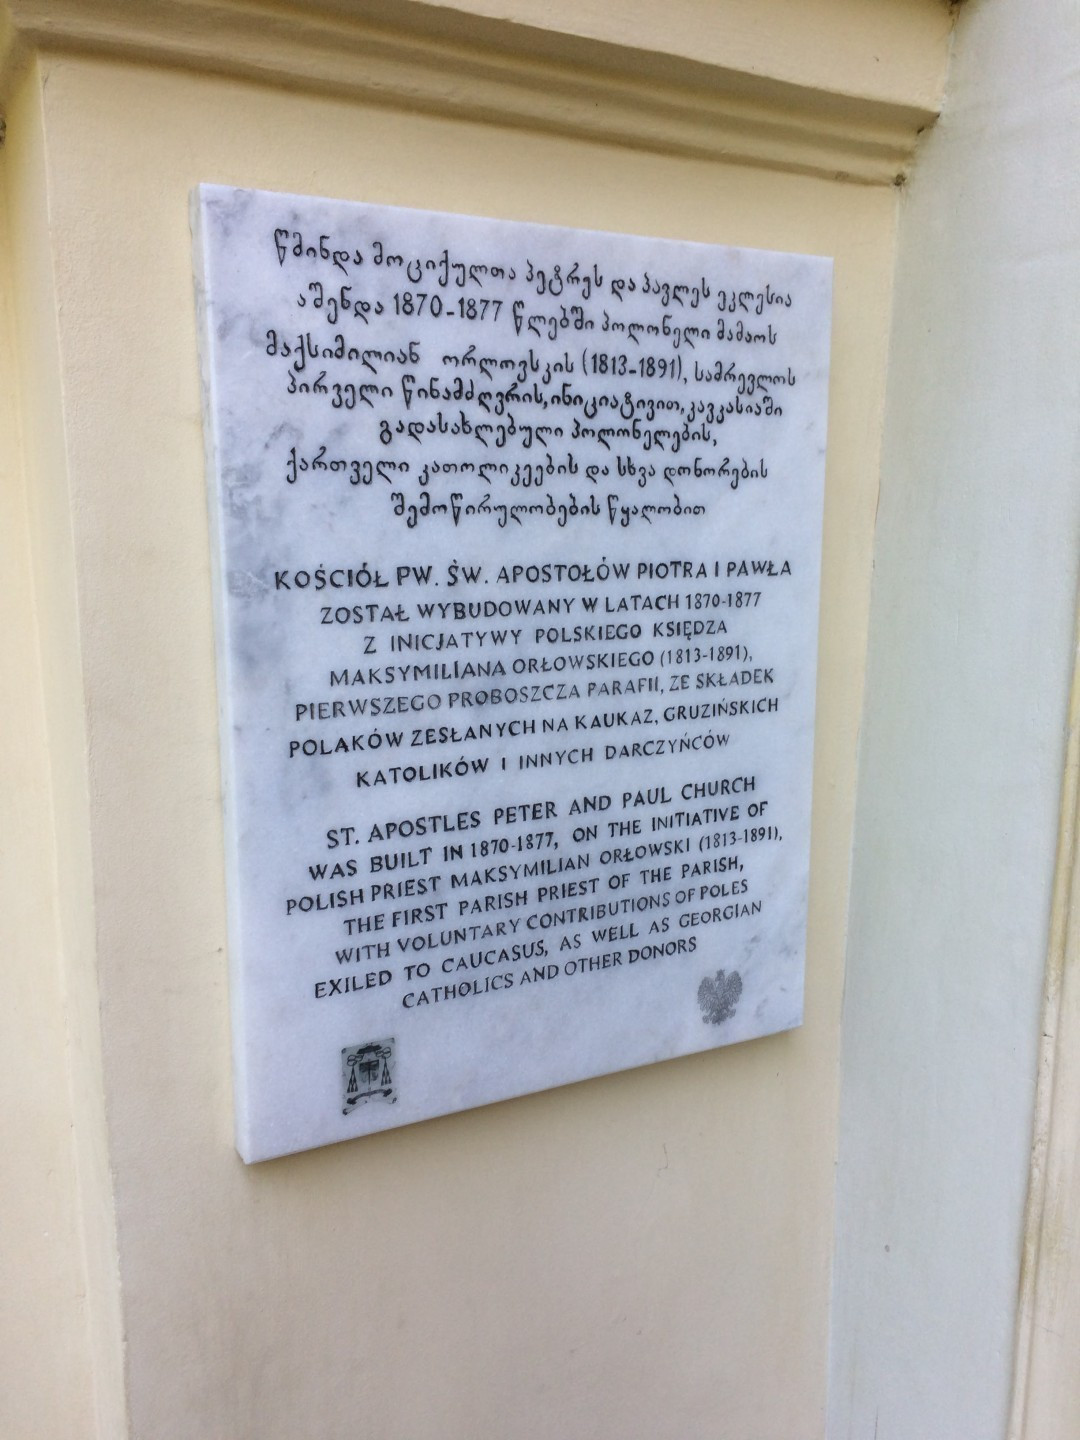 წმინდა მოციქულთა პეტრეს და პავლეს ეკლესია
აშენდა 1870-1877 წლებში პოლონელი მამაოს
მაქსიმილიან ორლოვსკის (1813-1891), სამრევლოს
პირველი წინამძღვრის, ინიციატივით, კავკასიაში
გადასახლებული პოლონელების,
ქართველი კათოლიკეების და სხვა დონორების
შემოწირულობების წყალობით
KOŚCIÓŁ PW. ŚW. APOSTOŁÓW PIOTRA I PAWŁA
ZOSTAŁ WYBUDOWANY W LATACH 1870-1877
Z INICJATYWY POLSKIEGO KSIĘDZA
MAKSYMILIANA ORŁOWSKIEGO (1813-1891),
PIERWSZEGO PROBOSZCZA PARAFII, ZE SKŁADEK
POLAKÓW ZESŁANYCH NA KAUKAZ, GRUZIŃSKICH
KATOLIKÓW I INNYCH DARCZYŃCÓW
ST. APOSTLES PETER AND PAUL CHURCH
WAS BUILT IN 1870-1877, ON THE INITIATIVE OF
POLISH PRIEST MAKSYMILIAN ORŁOWSKI (1813-1891),
THE FIRST PARISH PRIEST OF THE PARISH,
WITH VOLUNTARY CONTRIBUTIONS OF POLES
EXILED TO CAUCASUS, AS WELL AS GEORGIAN
CATHOLICS AND OTHER DONORS